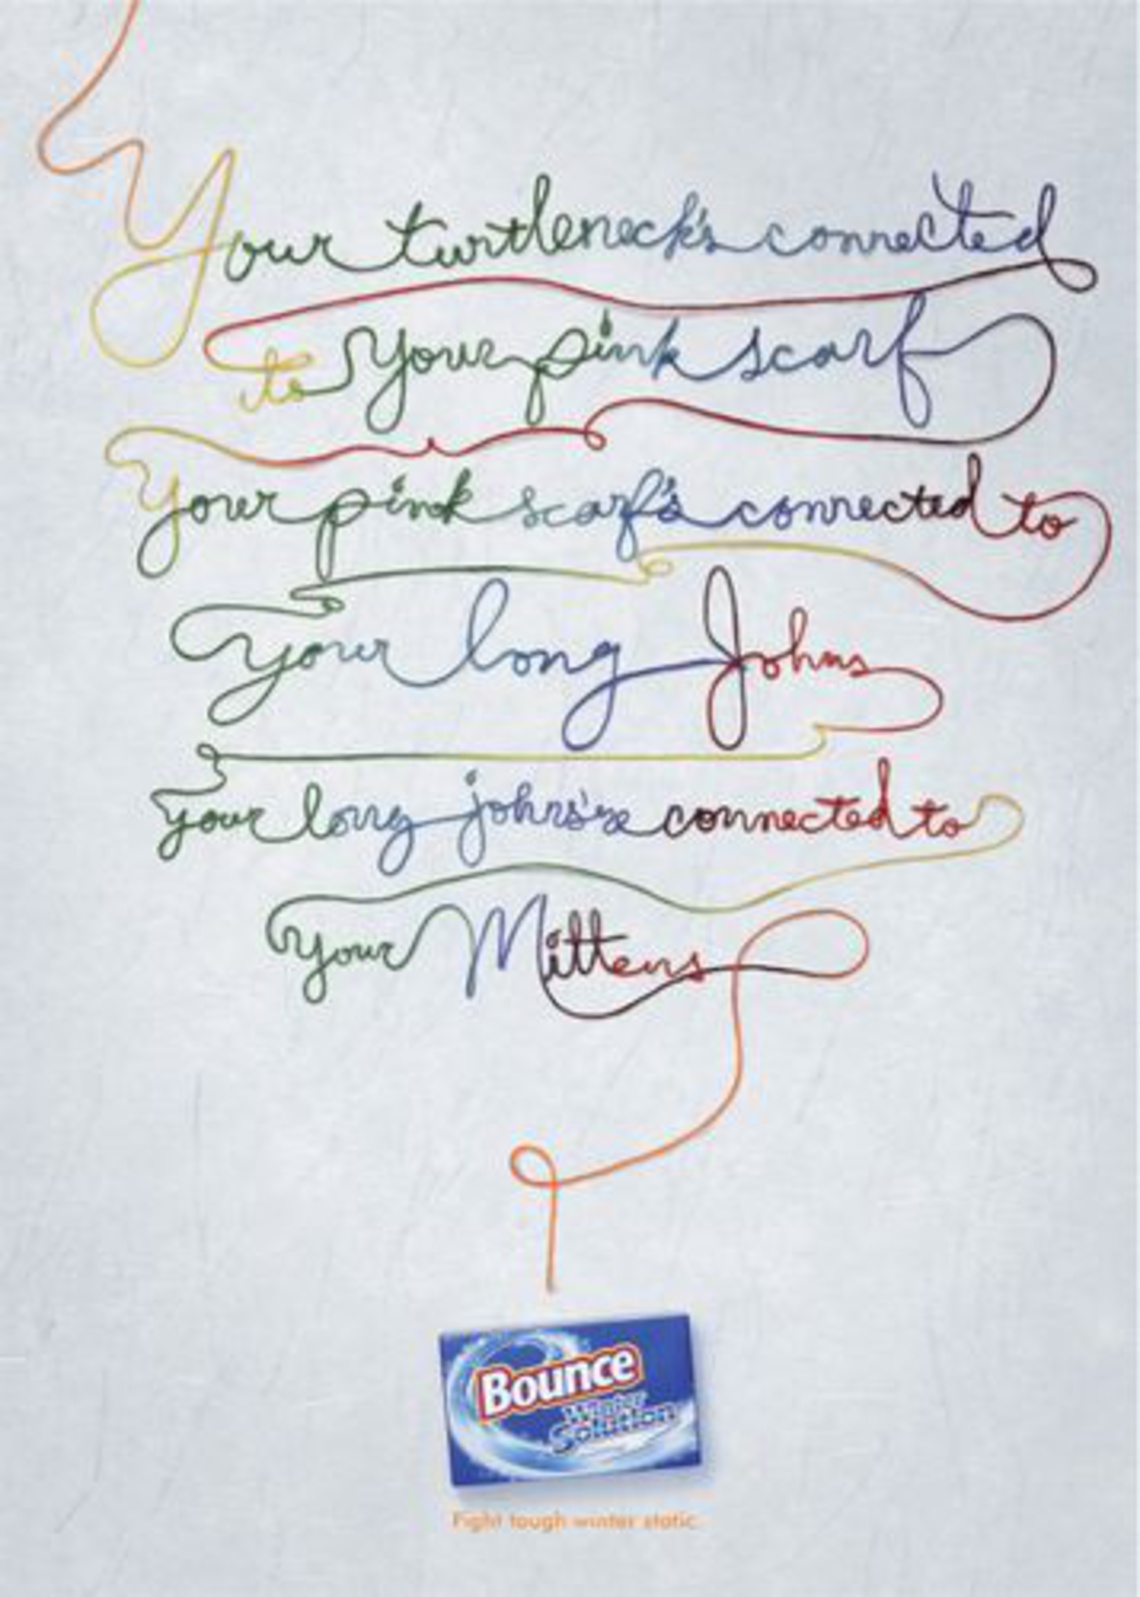 Your turtleneck's connected
to your pink scarf
Your pink scarf's connected to
your long Johns
your long johns's connected to
your Mittens
Bounce
Winter
Solution
Fight tough winter static.